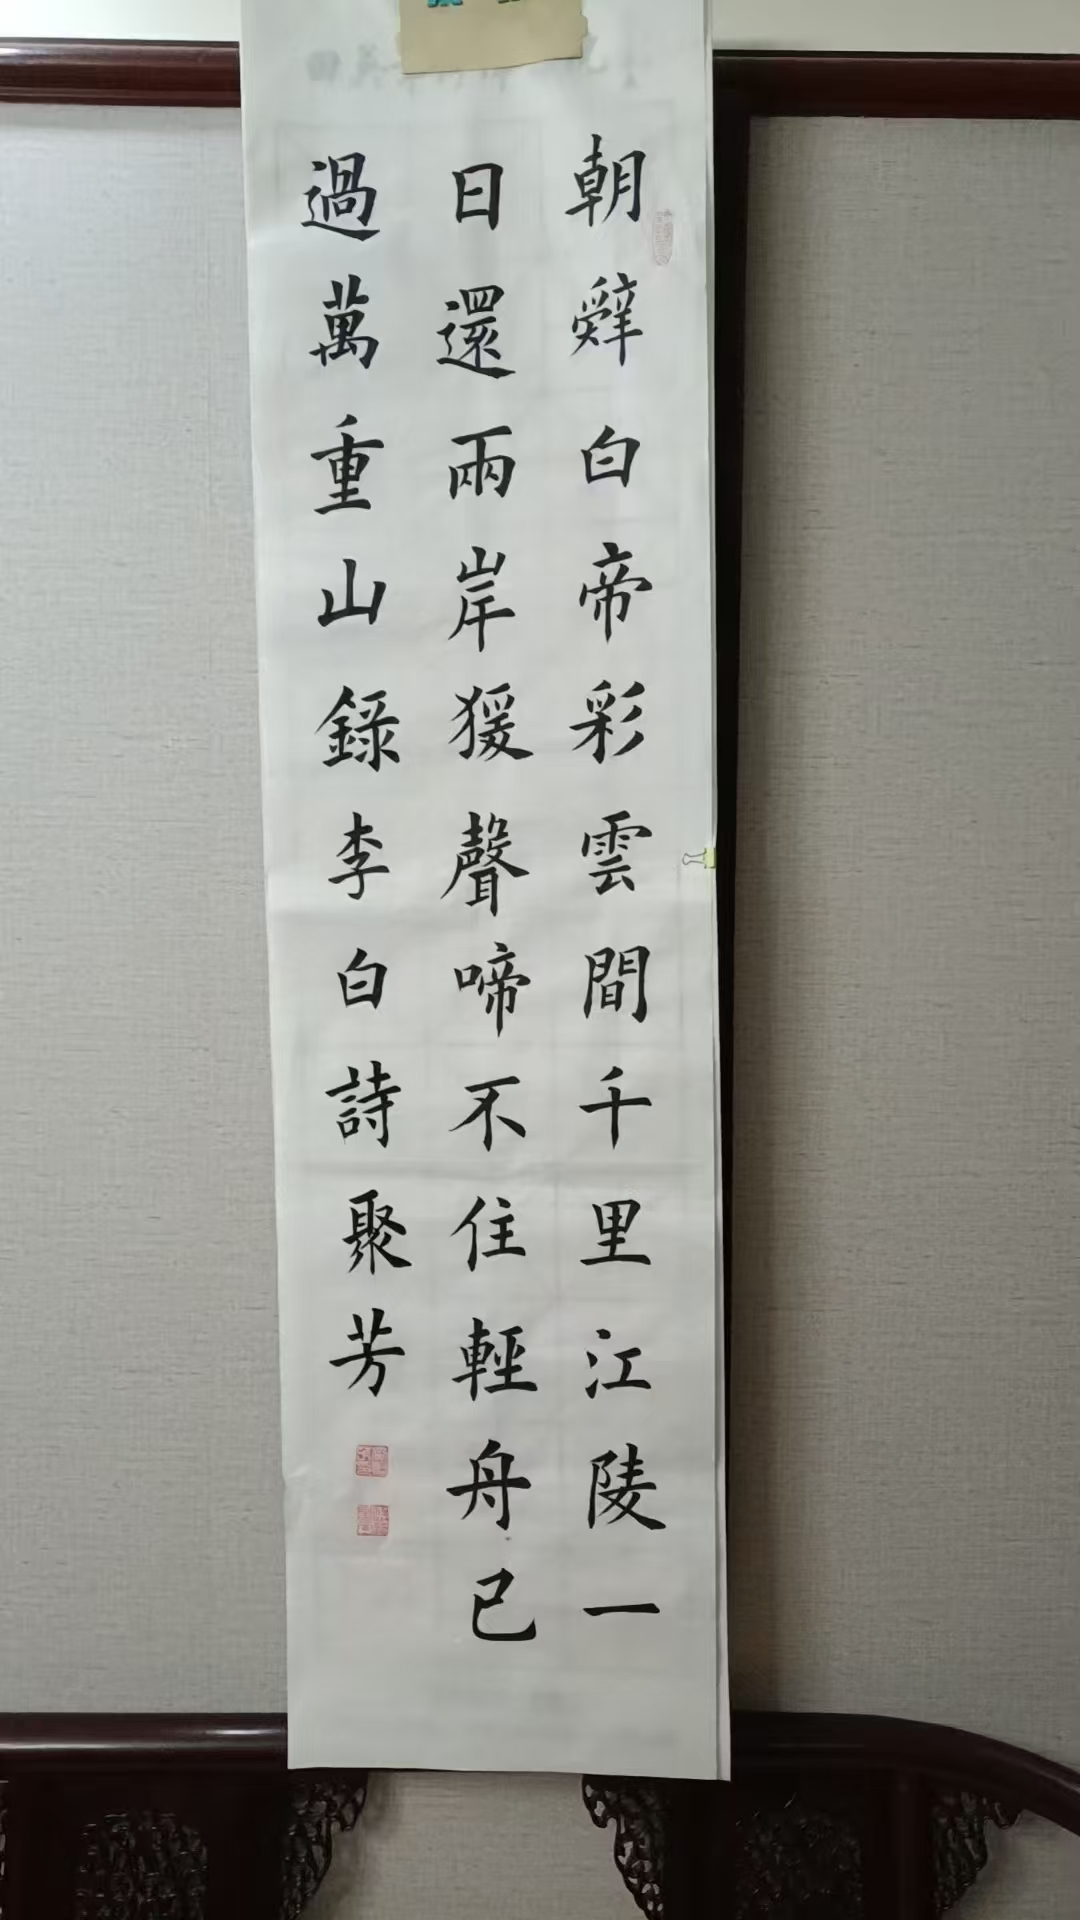 朝辤白帝彩雲間千里江陵一
日還兩岸猨聲啼不住輕舟已
過萬重山録李白詩聚芳